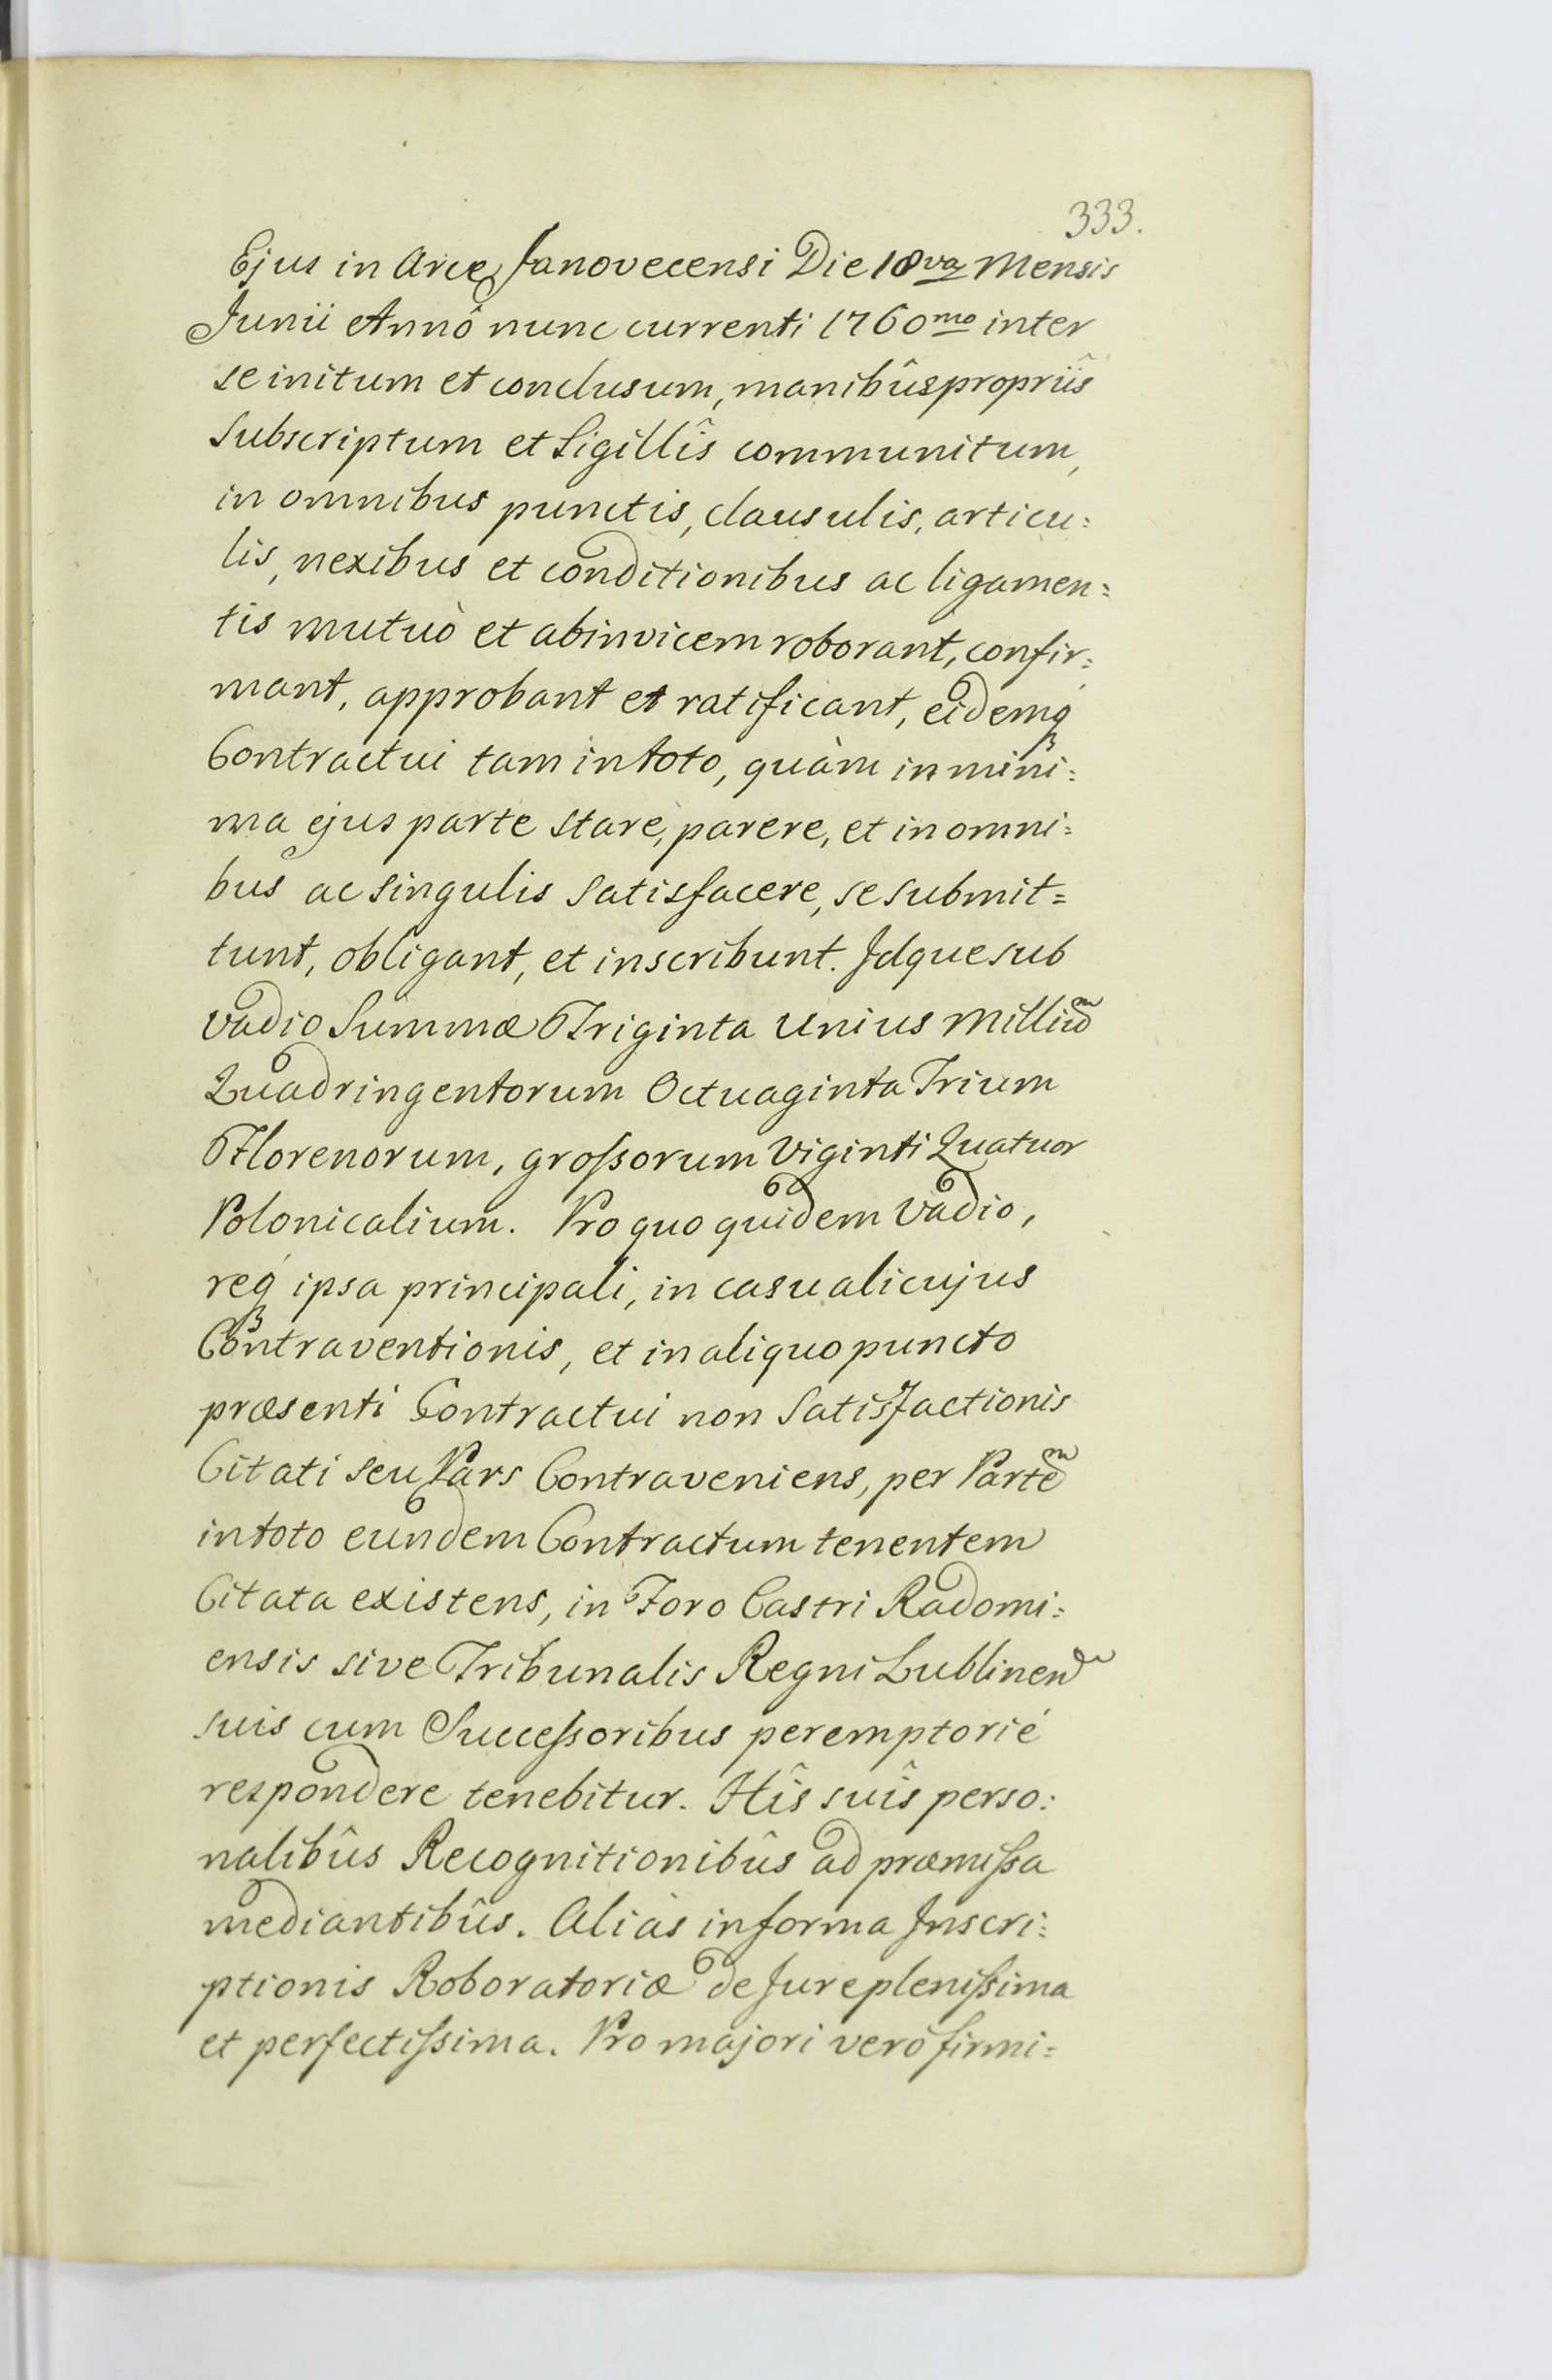 333.
Ejus in Arce Janovecensi Die 18va Mensis
Junii Annô nunc currenti 1760mo inter
se initum et conclusum, manibûs propriîs
Subscriptum et Sigillîs communitum,
in omnibus punctis, clausulis, articu:
lis, nexibus et conditionibus ac ligamen:
tis mutuò et abinvicem roborant, confir:
mant, approbant et ratificant, eidemq́
Contractui tam in toto, quàm in mini:
ma ejus parte stare, parere, et in omni:
bus ac singulis satisfacere, se submit=
tunt, obligant, et inscribunt. Idque sub
vadio Summæ Triginta Unius Milliũ
Quadringentorum Octuaginta Trium
Florenorum, groſsorum Viginti Quatuor
Polonicalium. Pro quo quidem Vadio,
req́ ipsa principali, in casu alicujus
Contraventionis, et in aliquo puncto
præsenti Contractui non Satisfactionis
Citati seu Pars Contraveniens, per Partẽ
in toto eundem Contractum tenentem
Citata existens, in Foro Castri Radomi:
ensis sive Tribunalis Regni Lublinen
suis cum Succeſsoribus peremptorié
respondere tenebitur. Hîs suîs perso:
nalibûs Recognitionibûs ad præmiſsa
mediantibûs. Aliàs in forma Inscri:
ptionis Roboratoriæ de Jure pleniſsima
et perfectiſsima. Pro majori verò firmi: